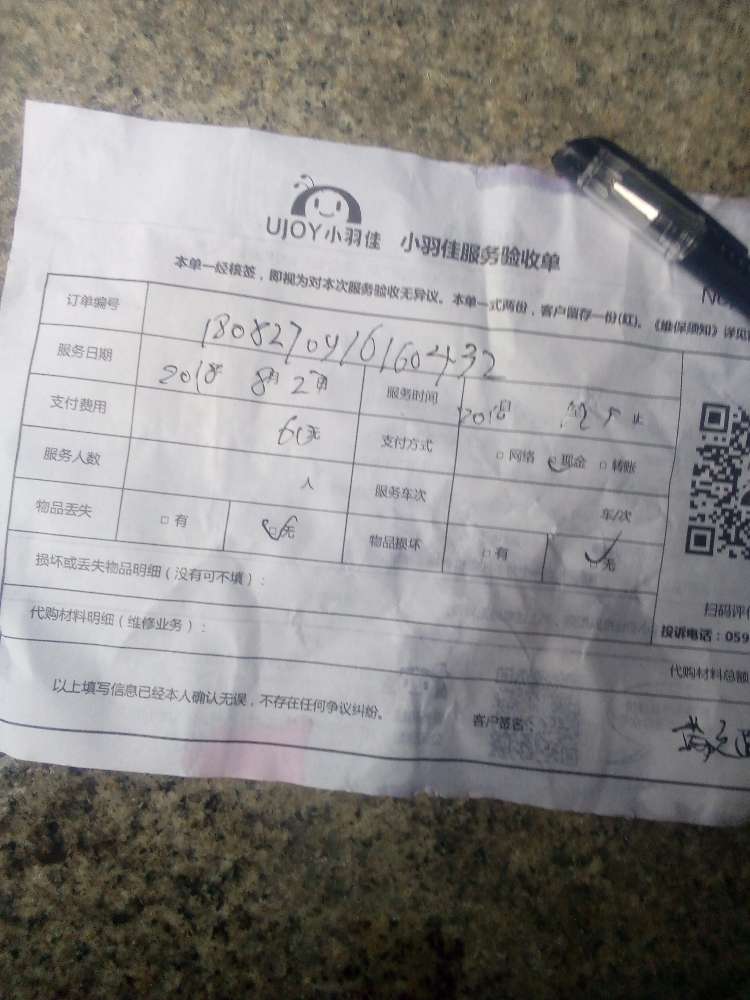 UJOY小羽佳 小羽佳服务验收单
No
本单一经核签，即视为对本次服务验收无异议。本单一式两份，客户留存一份(红)。《维保须知》详见
订单编号 180827091616043
服务日期 2018 8月2 服务时间
支付费用 60元 支付方式 □ 网络 □ 现金 □ 转账
服务人数 人 服务车次 车/次
物品丢失 □ 有 □ 无 物品损坏 □ 有 □ 无
损坏或丢失物品明细（没有可不填）：
扫码评价
代购材料明细（维修业务）：
投诉电话：059
代购材料总额
以上填写信息已经本人确认无误，不存在任何争议纠纷。 客户签名：